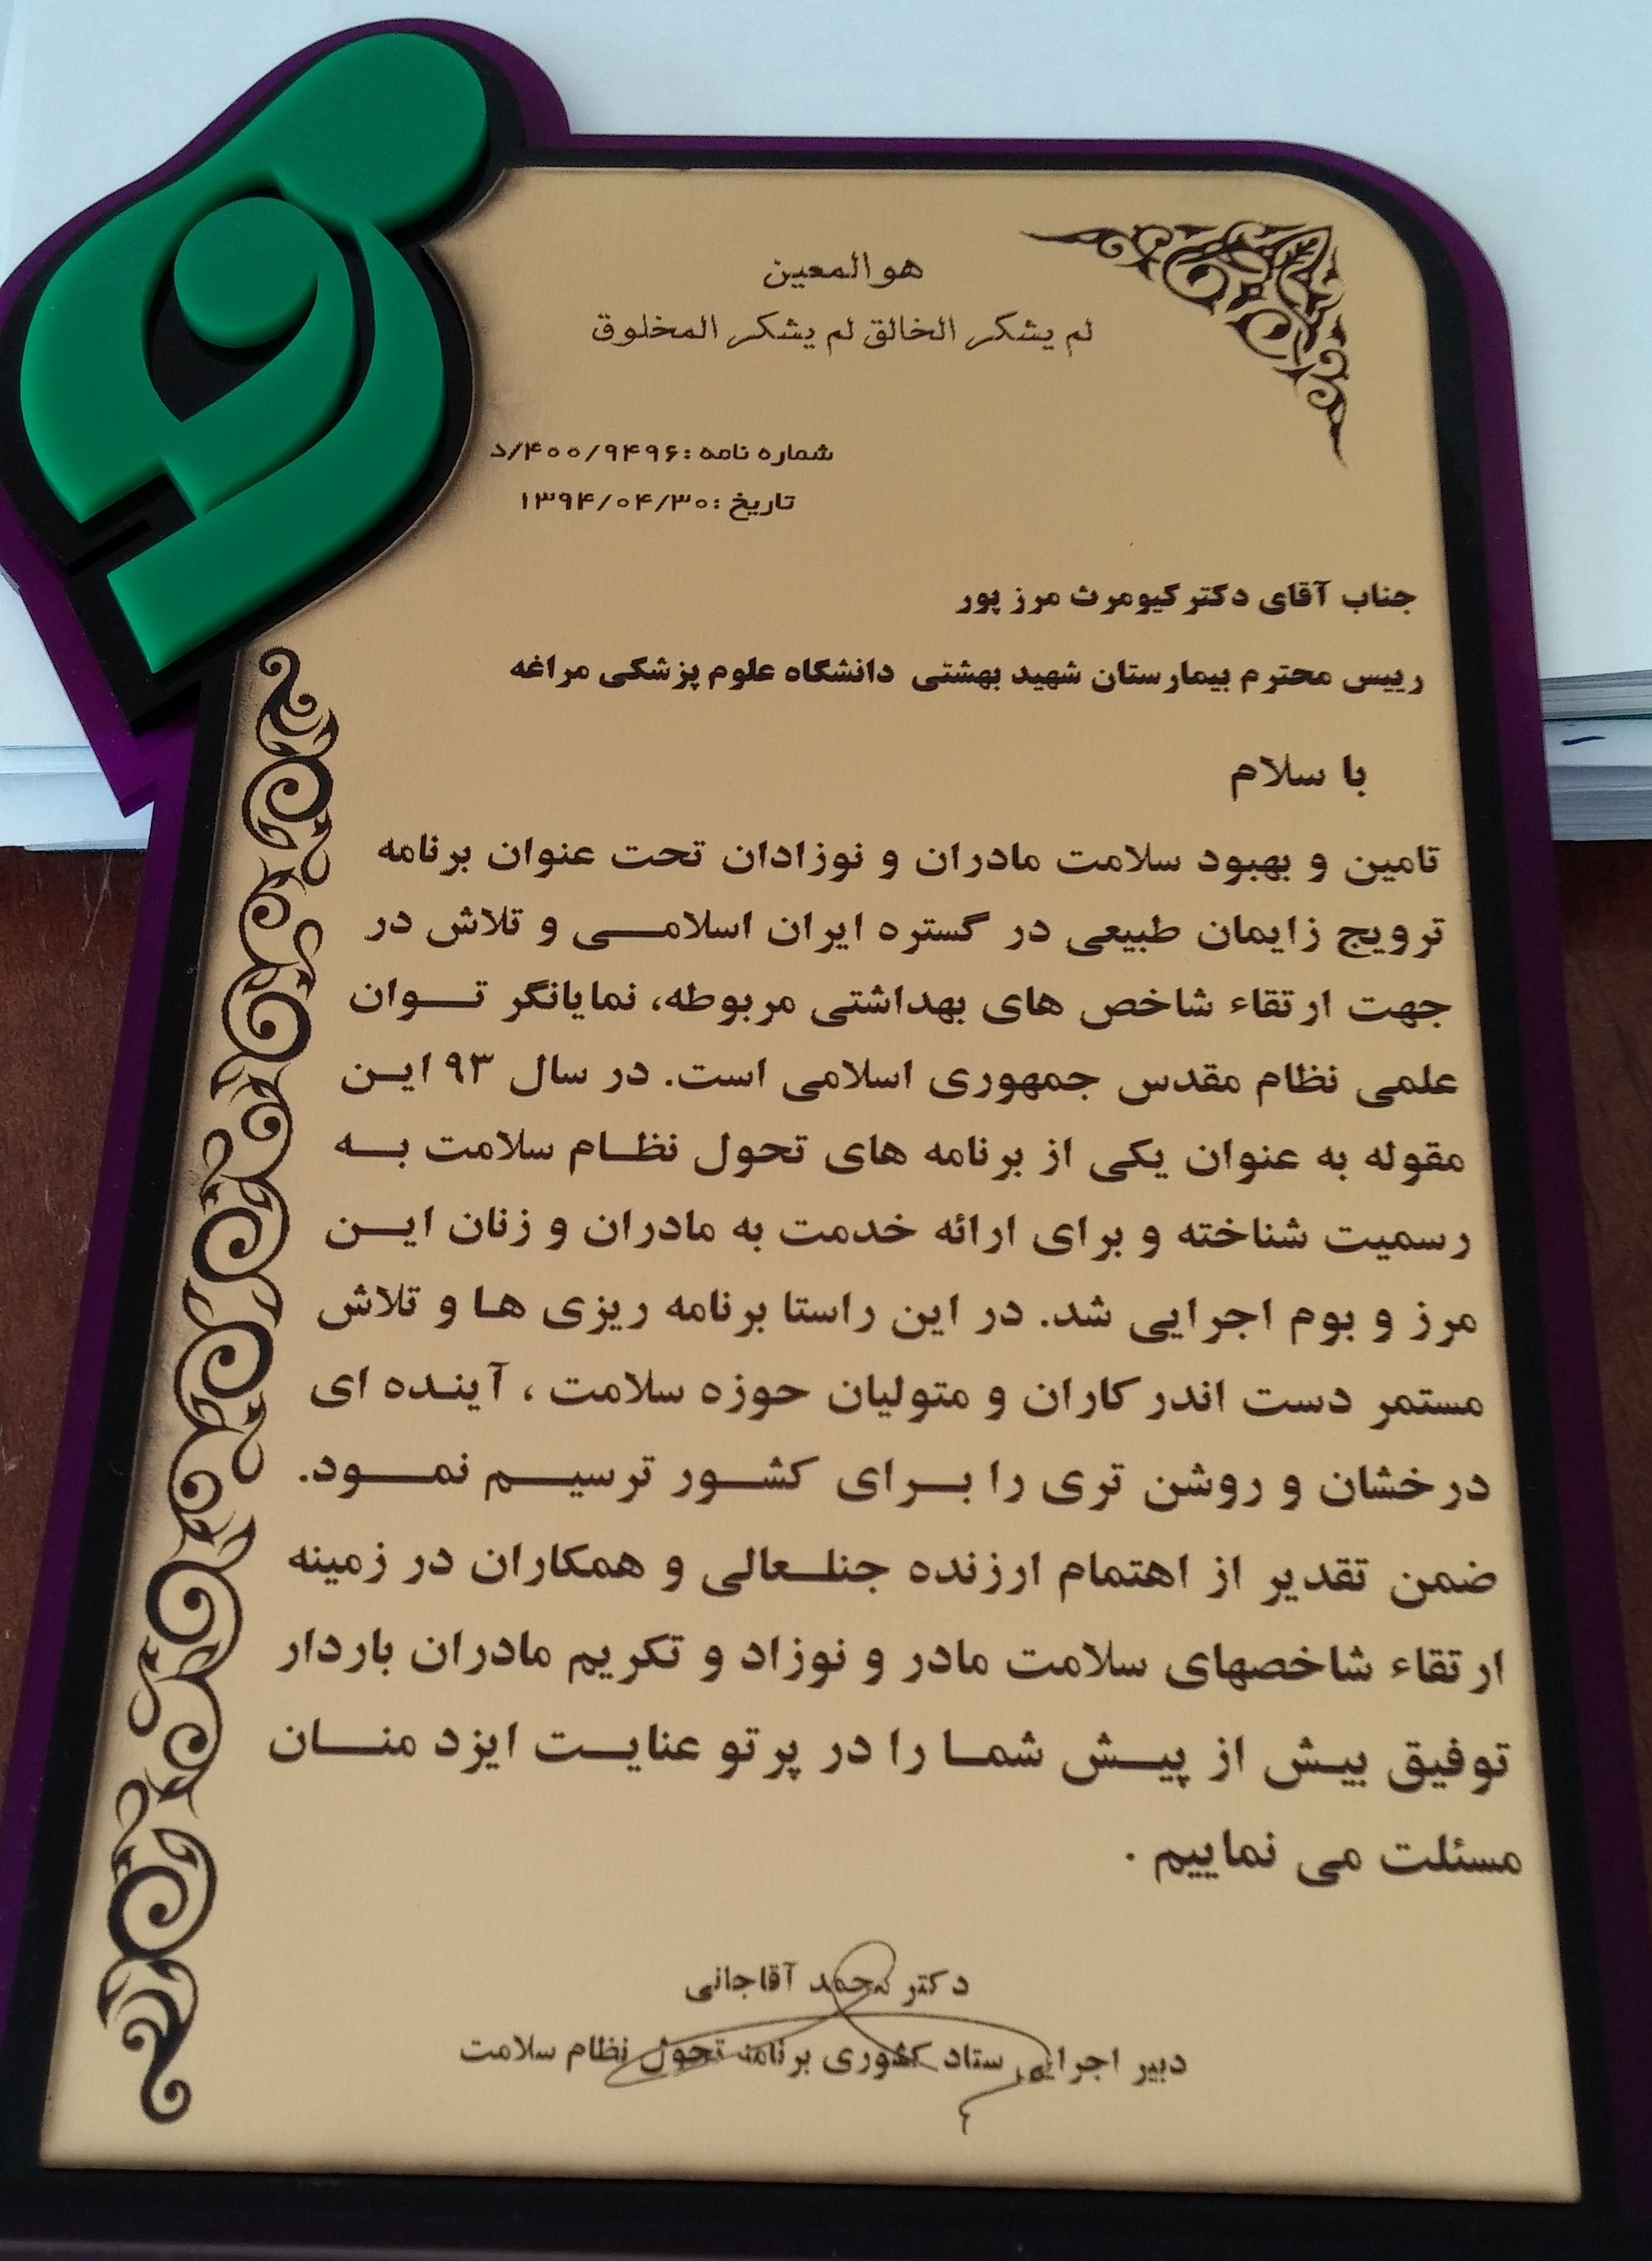 هو المعین
لم یشکر الخالق لم یشکر المخلوق
شماره نامه :۴۰۰/۹۴۹۶/د
تاریخ :۱۳۹۴/۰۴/۳۰
جناب آقای دکتر کیومرث مرز پور
رییس محترم بیمارستان شهید بهشتی دانشگاه علوم پزشکی مراغه
با سلام
تامین و بهبود سلامت مادران و نوزادان تحت عنوان برنامه
ترویج زایمان طبیعی در گستره ایران اسلامـــی و تلاش در
جهت ارتقاء شاخص های بهداشتی مربوطه، نمایانگر تـــوان
علمی نظام مقدس جمهوری اسلامی است. در سال ۹۳ ایـن
مقوله به عنوان یکی از برنامه های تحول نظـام سلامت بــه
رسمیت شناخته و برای ارائه خدمت به مادران و زنان ایــن
مرز و بوم اجرایی شد. در این راستا برنامه ریزی هـا و تلاش
مستمر دست اندرکاران و متولیان حوزه سلامت ، آینـده ای
درخشان و روشن تری را بـــرای کشـــور ترسیـــم نمـــود.
ضمن تقدیر از اهتمام ارزنده جنلــعالی و همکاران در زمینه
ارتقاء شاخصهای سلامت مادر و نوزاد و تکریم مادران باردار
توفیق بیـش از پیـــش شمـــا را در پرتو عنایـــت ایزد منـــان
مسئلت می نماییم .
دکتر محمد آقاجانی
دبیر اجرایی ستاد کشوری برنامه تحول نظام سلامت